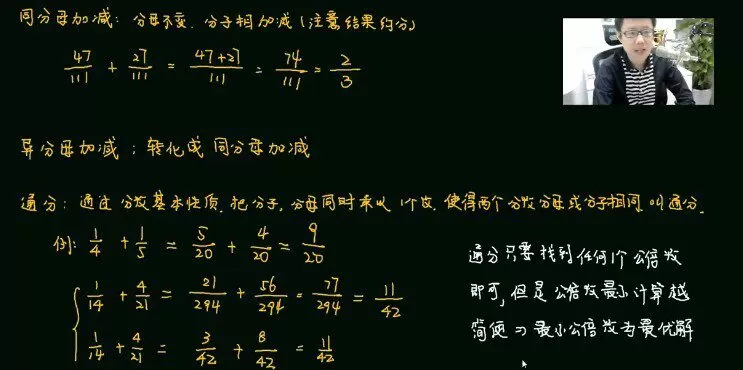 同分母加减：分母不变，分子相加减（注意结果约分）
47/111 + 27/111 = 47+27/111 = 74/111 = 2/3
异分母加减：转化成 同分母加减
通分：通过 分数基本性质，把分子，分母同时乘以 1个数，使得两个分数分母或分子相同，叫通分。
例：1/4 + 1/5 = 5/20 + 4/20 = 9/20
1/14 + 4/21 = 21/294 + 56/294 = 77/294 = 11/42
1/14 + 4/21 = 3/42 + 8/42 = 11/42
通分只要找到任何1个公倍数
即可，但是公倍数最小计算越
简便 ⇒ 最小公倍数为最优解